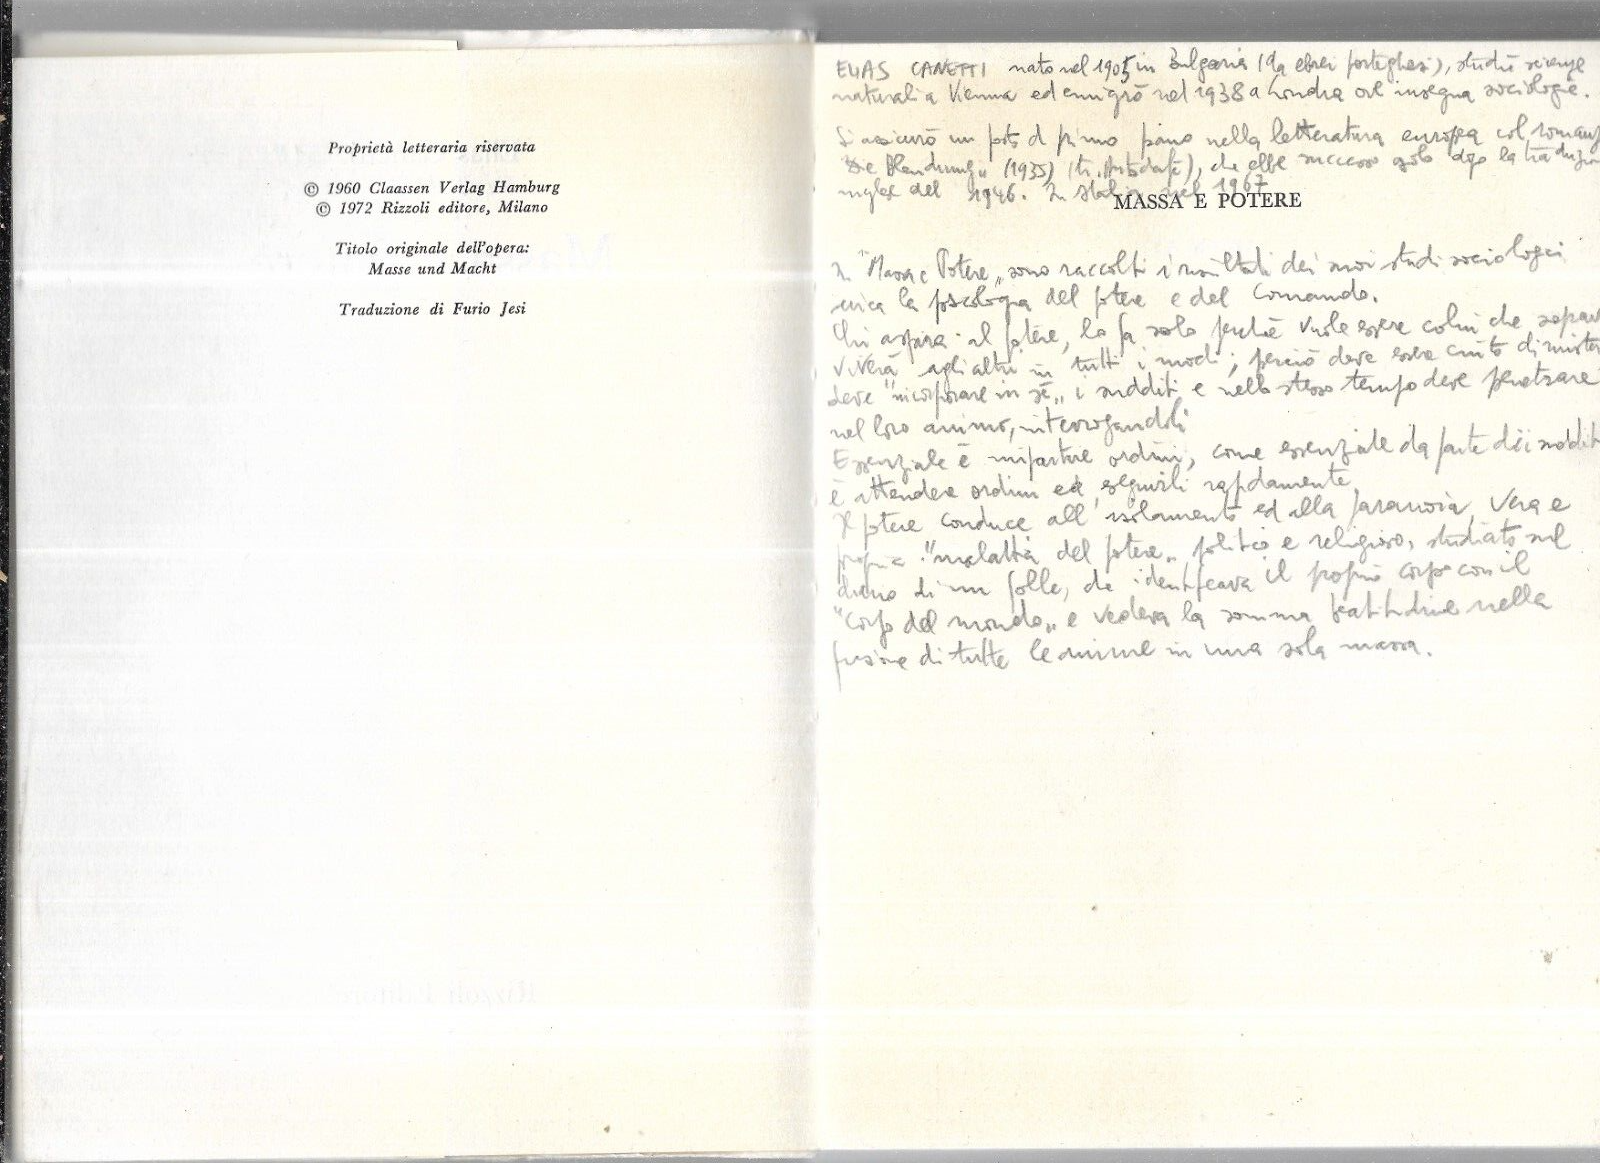 Proprietà letteraria riservata
© 1960 Claassen Verlag Hamburg
© 1972 Rizzoli editore, Milano
Titolo originale dell'opera:
Masse und Macht
Traduzione di Furio Jesi
ELIAS CANETTI nato nel 1905 in Bulgaria (da ebrei portoghesi), studiò scienze
naturali a Vienna ed emigrò nel 1938 a Londra ove insegna sociologia.
Si assicurò un posto di primo piano nella letteratura europea col romanzo
"Die Blendung" (1935) (tr. Autodafé), che ebbe successo solo dopo la traduzion
inglese del 1946. In Italia nel 1967
MASSA E POTERE
In "Massa e Potere" sono raccolti i risultati dei suoi studi sociologici
la psicologia del potere e del Comando.
Chi aspira al potere, lo fa solo perché vuole essere colui che soprav
viverà agli altri in tutti i modi; perciò deve essere cinto di mister
deve "incorporare in sé" i sudditi e nello stesso tempo deve penetrare
nel loro animo, interrogandoli
Essenziale è impartire ordini, come essenziale da parte dei suddit
è attendere ordini ed eseguirli rapidamente
Il potere conduce all'isolamento ed alla paranoia, vera e
propria "malattia del potere" politico e religioso, studiato sul
diario di un folle, che identificava il proprio corpo con il
"corpo del mondo" e vedeva la somma beatitudine nella
fusione di tutte le anime in una sola massa.